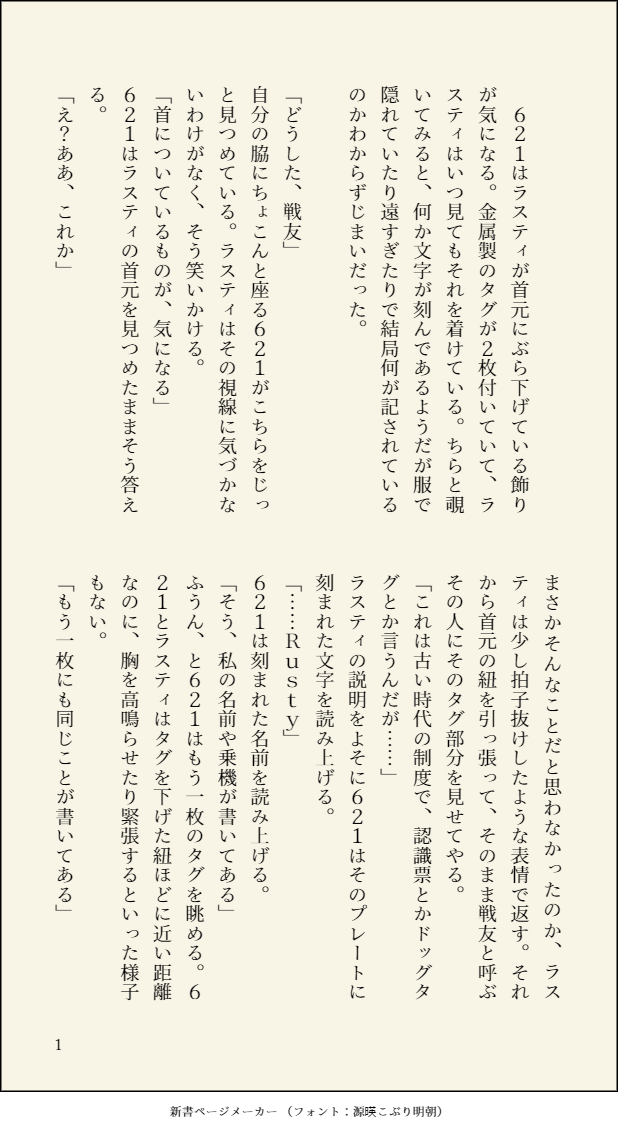 ６２１はラスティが首元にぶら下げている飾り
が気になる。金属製のタグが２枚付いていて、ラ
スティはいつ見てもそれを着けている。ちらと覗
いてみると、何か文字が刻んであるようだが服で
隠れていたり遠すぎたりで結局何が記されている
のかわからずじまいだった。
「どうした、戦友」
自分の脇にちょこんと座る６２１がこちらをじっ
と見つめている。ラスティはその視線に気づかな
いわけがなく、そう笑いかける。
「首についているものが、気になる」
６２１はラスティの首元を見つめたままそう答え
る。
「え？ああ、これか」
まさかそんなことだと思わなかったのか、ラス
ティは少し拍子抜けしたような表情で返す。それ
から首元の紐を引っ張って、そのまま戦友と呼ぶ
その人にそのタグ部分を見せてやる。
「これは古い時代の制度で、認識票とかドッグタ
グとか言うんだが……」
ラスティの説明をよそに６２１はそのプレートに
刻まれた文字を読み上げる。
「……Ｒｕｓｔｙ」
６２１は刻まれた名前を読み上げる。
「そう、私の名前や乗機が書いてある」
ふうん、と６２１はもう一枚のタグを眺める。６
２１とラスティはタグを下げた紐ほどに近い距離
なのに、胸を高鳴らせたり緊張するといった様子
もない。
「もう一枚にも同じことが書いてある」
1
新書ページメーカー （フォント：源暎こぶり明朝）